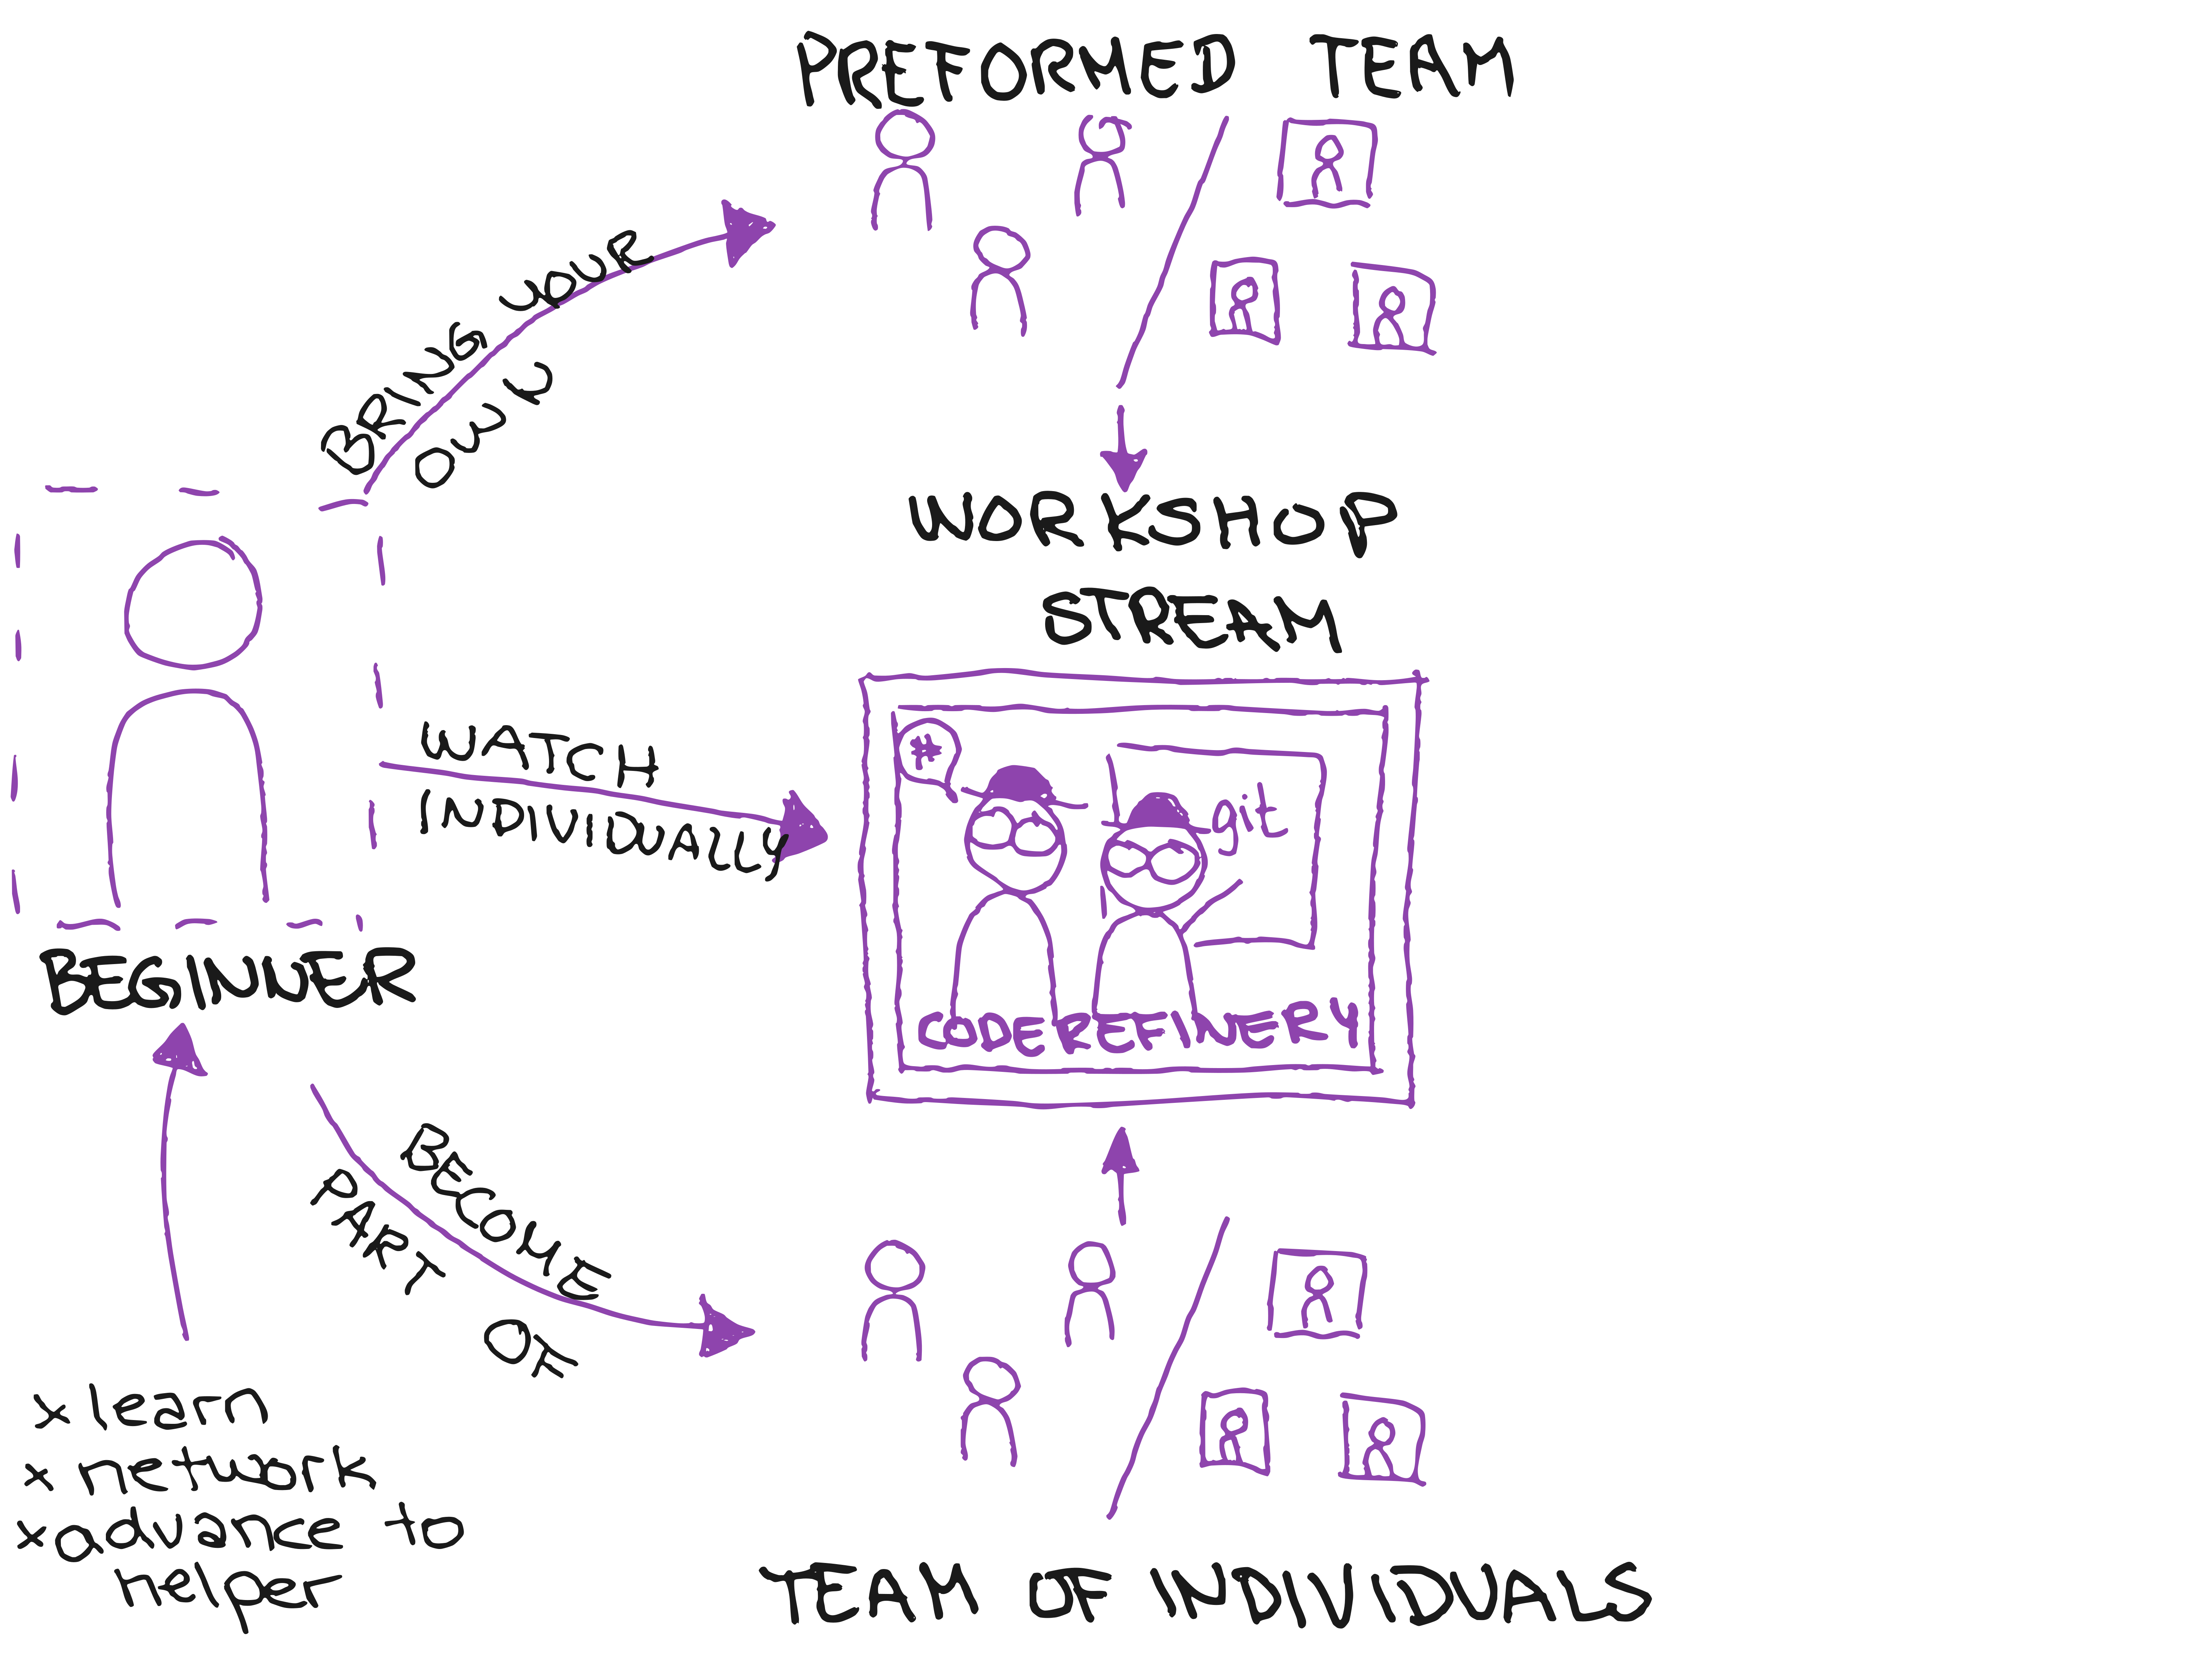 PREFORMED TEAM
BRING YOUR
OWN
WORKSHOP
STREAM
WATCH
INDIVIDUALLY
#
git
CODEREFINERY
BEGINNER
BECOME
PART
OF
x learn
x network
x advance to
helper
TEAM OF INDIVIDUALS